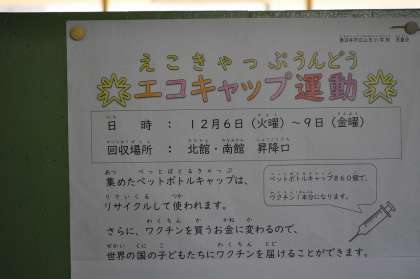 えこきゃっぷうんどう
エコキャップ運動
日 時 : 12月6日(火曜)～9日(金曜)
回収場所 : 北館・南館 昇降口
集めたペットボトルキャップは、
リサイクルして使われます。
ペットボトルキャップ860個で、
ワクチン1本分になります。
さらに、ワクチンを買うお金に変わるので、
世界の国の子どもたちにワクチンを届けることができます。